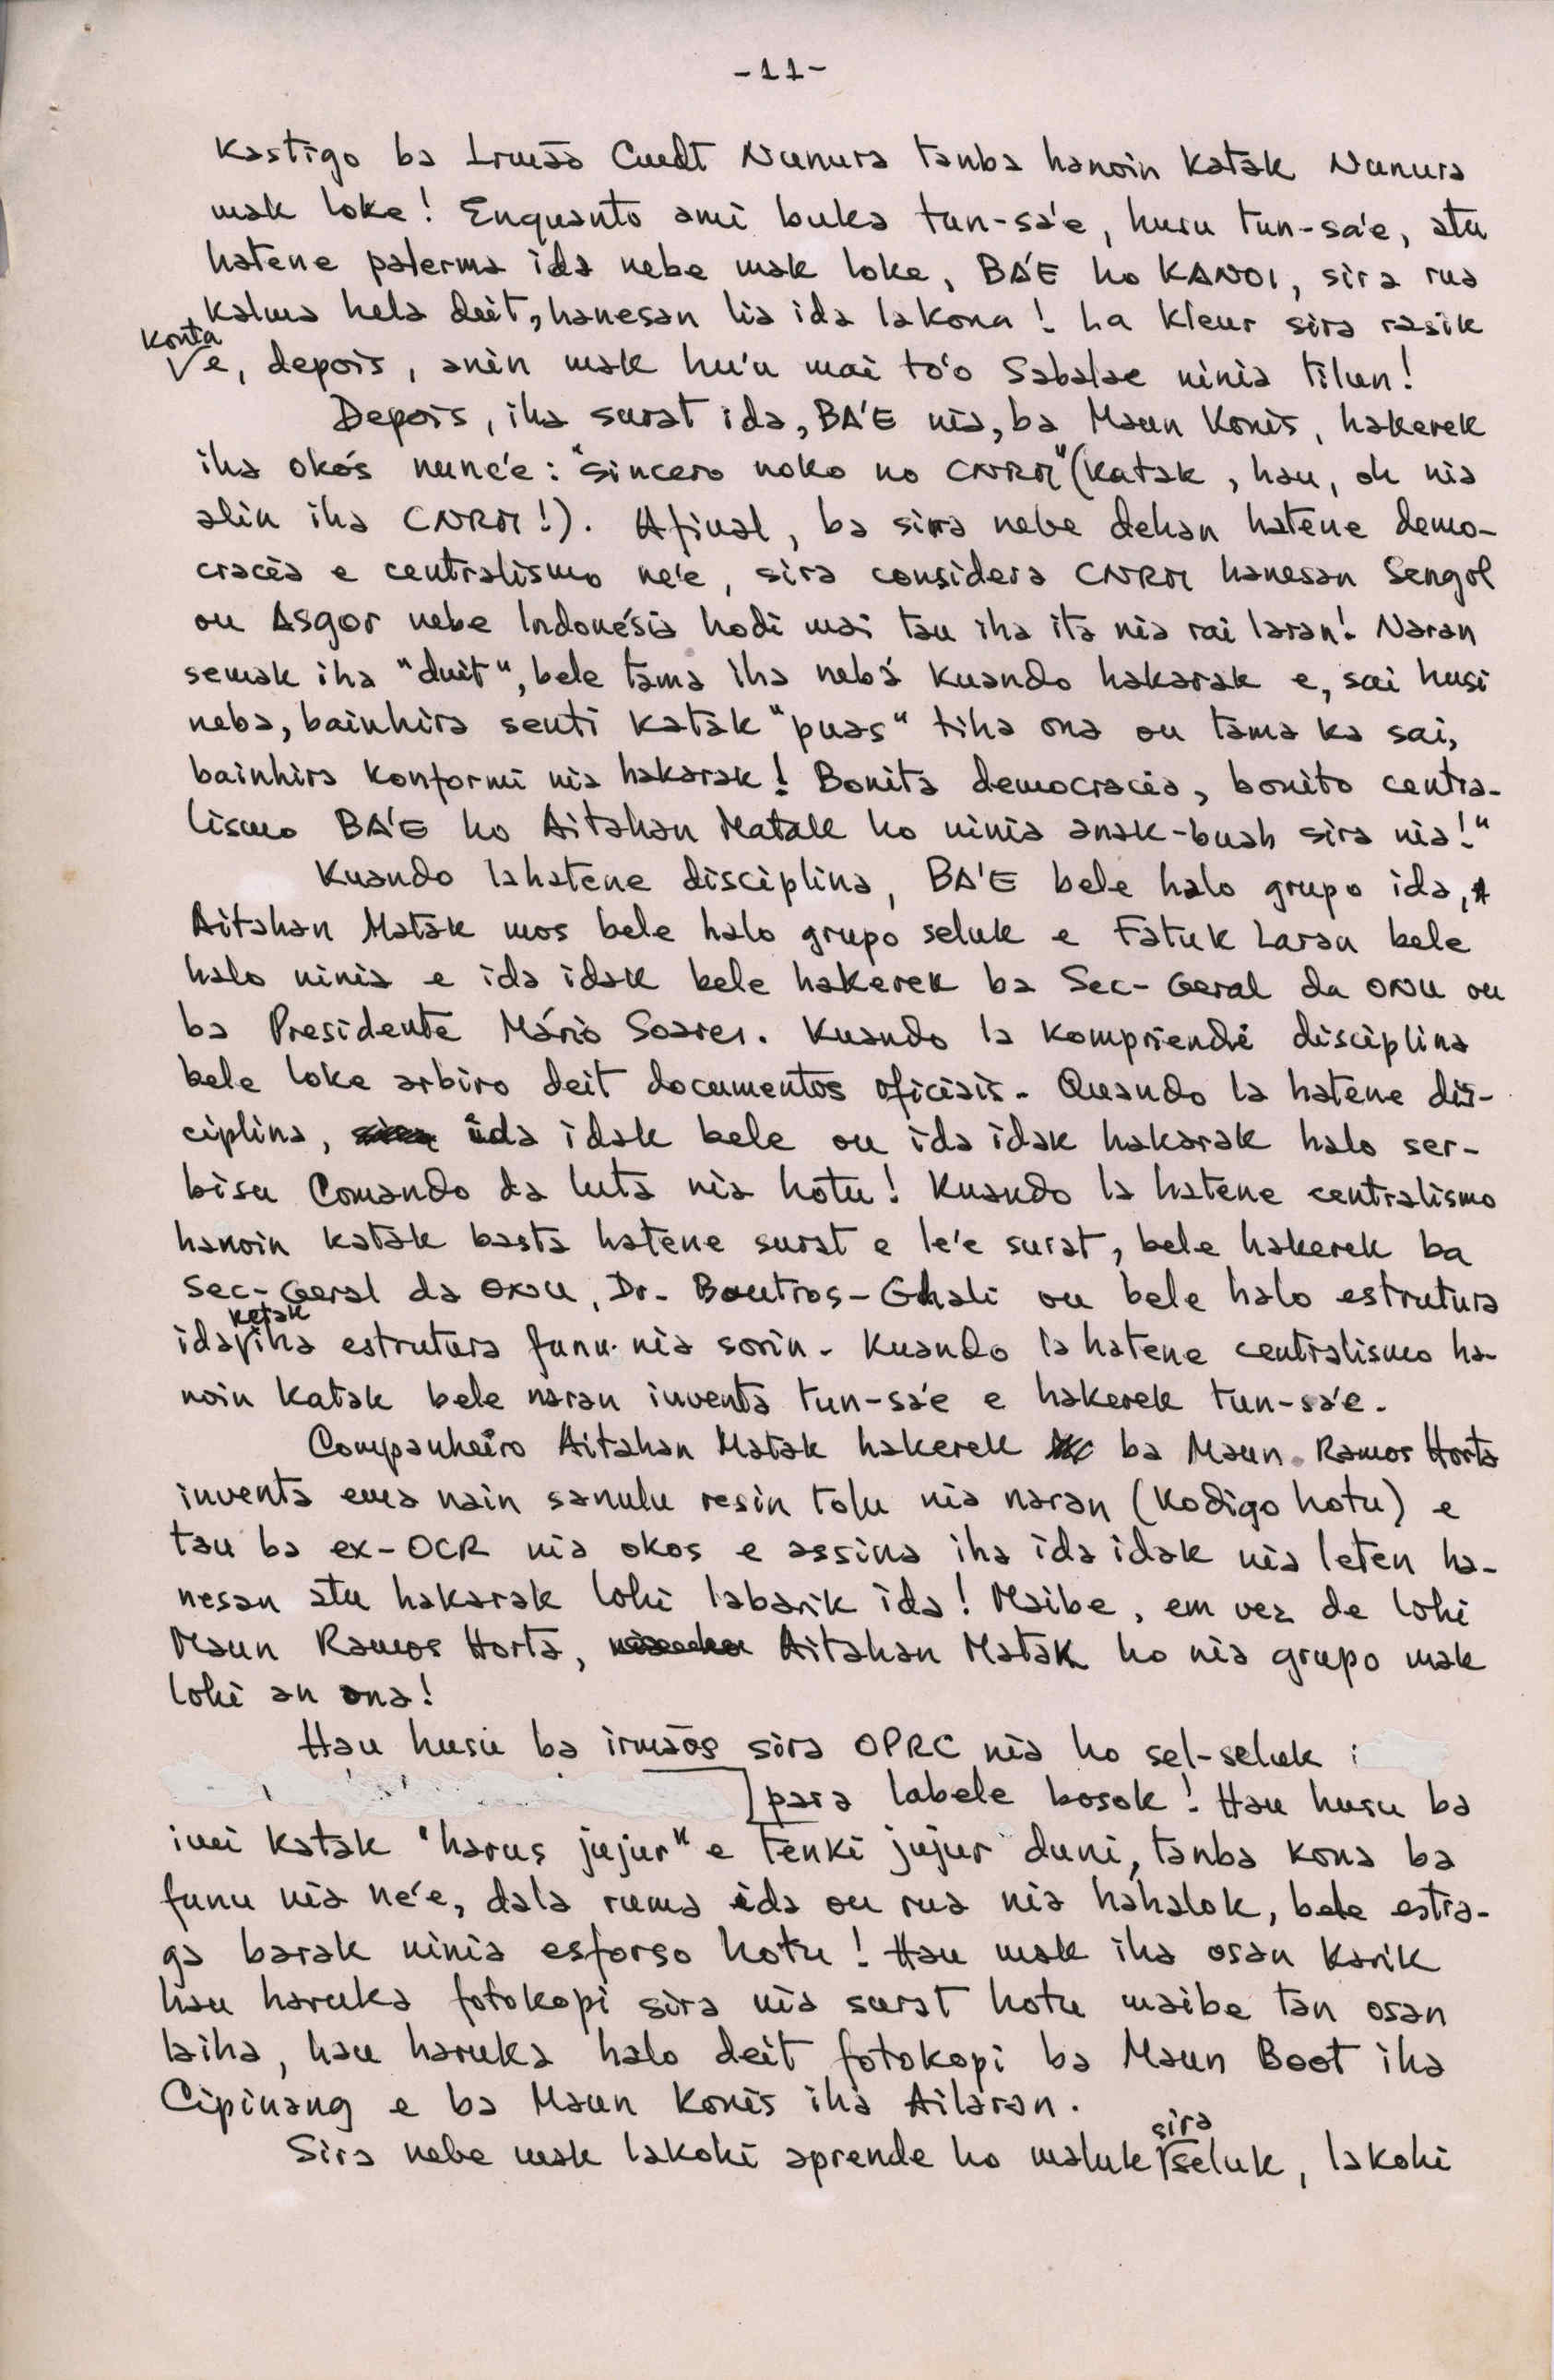 -11-
Kastigo ba Irmão Cmdt Nunura tanba hanoin katak Nunura
mak loke! Enquanto ami buka tun-sa'e, husu tun-sa'e, atu
hatene palerma ida nebe mak loke, BA'E ho KANOI, sira rua
kalma hela deit, hanesan lia ida la kona! La kleur sira rasik
konta
e, depois, anin mak hu'u mai to'o Sabalae ninia tilun!
Depois, iha surat ida, BA'E nia, ba Maun Konis, hakerek
iha okos nune'e: "sincero noko no CNRM" (katak, hau, oh nia
alin iha CNRM!). Afinal, ba sira nebe dehan hatene demo-
cracia e centralismo ne'e, sira considera CNRM hanesan Sengol
ou Asgor nebe Indonésia hodi mai tau iha ita nia rai laran! Naran
semak iha "duit", bele tama iha nebá kuando hakarak e, sai husi
neba, bainhira senti katak "puas" tiha ona ou tama ka sai,
bainhira konformi nia hakarak! Bonita democracia, bonito centra-
lismo BA'E ho Aitahan Matak ho ninia anak-buah sira nia!"
Kuando la hatene disciplina, BA'E bele halo grupo ida,
Aitahan Matak mos bele halo grupo seluk e Fatuk Laran bele
halo ninia e ida idak bele hakerek ba Sec-Geral da ONU ou
ba Presidente Mário Soares. Kuando la kompriendi disciplina
bele loke arbiro deit documentos oficiais. Quando la hatene dis-
ciplina, ida idak bele ou ida idak hakarak halo ser-
bisu Comando da luta nia hotu! Kuando la hatene centralismo
hanoin katak basta hatene surat e le'e surat, bele hakerek ba
Sec-Geral da ONU, Dr. Boutros-Ghali ou bele halo estrutura
ketak
ida iha estrutura funu nia sorin. Kuando la hatene centralismo ha-
noin katak bele naran inventa tun-sa'e e hakerek tun-sa'e.
Companheiro Aitahan Matak hakerek ba Maun Ramos Horta
inventa ema nain sanulu resin tolu nia naran (kodigo hotu) e
tau ba ex-OCR nia okos e assina iha ida idak nia leten ha-
nesan atu hakarak lohi labarik ida! Maibe, em vez de lohi
Maun Ramos Horta, Aitahan Matak ho nia grupo mak
lohi an ona!
Hau husu ba irmãos sira OPRC nia ho sel-seluk
para labele bosok! Hau husu ba
imi katak "harus jujur" e tenki jujur duni, tanba kona ba
funu nia ne'e, dala ruma ida ou rua nia hahalok, bele estra-
ga barak ninia esforso hotu! Hau mak iha osan karik
hau haruka fotokopi sira nia surat hotu maibe tan osan
laiha, hau haruka halo deit fotokopi ba Maun Boot iha
Cipinang e ba Maun Konis iha Ailaran.
sira
Sira nebe mak lakohi aprende ho maluk seluk, lakohi